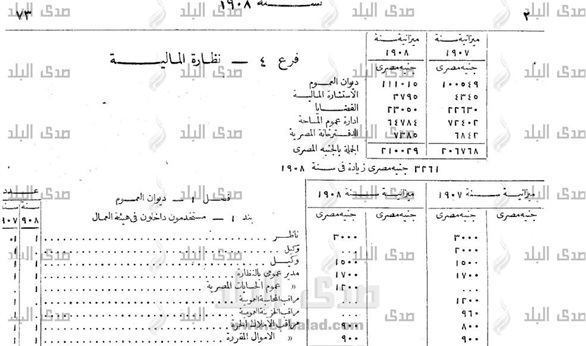 ٢ سنة ١٩٠٨ ٧٣
فرع ٤ – نظارة المالية
ميزانية سنة ١٩٠٧ ميزانية سنة ١٩٠٨
جنيه مصرى جنيه مصرى
١٠٠٥٤٩ ١١١٠١٥ ديوان العموم
٤٣٤٥ ٣٧٩٥ الاستشارة المالية
٢٢٦٣٠ ٢٣٠٥٠ القضايا
٧٢٤٠٢ ٦٤٧٨٤ ادارة عموم المساحة
٦٨٤٢ ٧٣٨٥ الدفترخانة المصرية
٢٠٦٧٦٨ ٢١٠٠٢٩ الجملة بالجنيه المصرى
٣٢٦١ جنيه مصرى زيادة فى سنة ١٩٠٨
ميزانية سنة ١٩٠٧ ميزانية سنة ١٩٠٨
جنيه مصرى جنيه مصرى
فصل ١ – ديوان العموم
بند ١ – مستخدمون داخلون فى هيئة العمال
عدد
سنة ٩٠٨ سنة ٩٠٧
٣٠٠٠ ٣٠٠٠ ناظر ١ ١
٢٠٠٠ ... وكيل
١٥٠٠ ١٥٠٠ وكيل ١ ١
١٧٠٠ ١٧٠٠ مدير عمومى بالنظارة ١ ١
... ١٢٠٠ » عموم الحسابات المصرية ١
١٢٠٠ مراقب المحاسبة العمومية
٩٦٠ مراقب الخزينة العمومية
٨٠٠ ٩٠٠ مراقب الاملاك الحرة ١ ١
٩٠٠ ٩٠٠ » الاموال المقررة ١ ١
صدى البلد